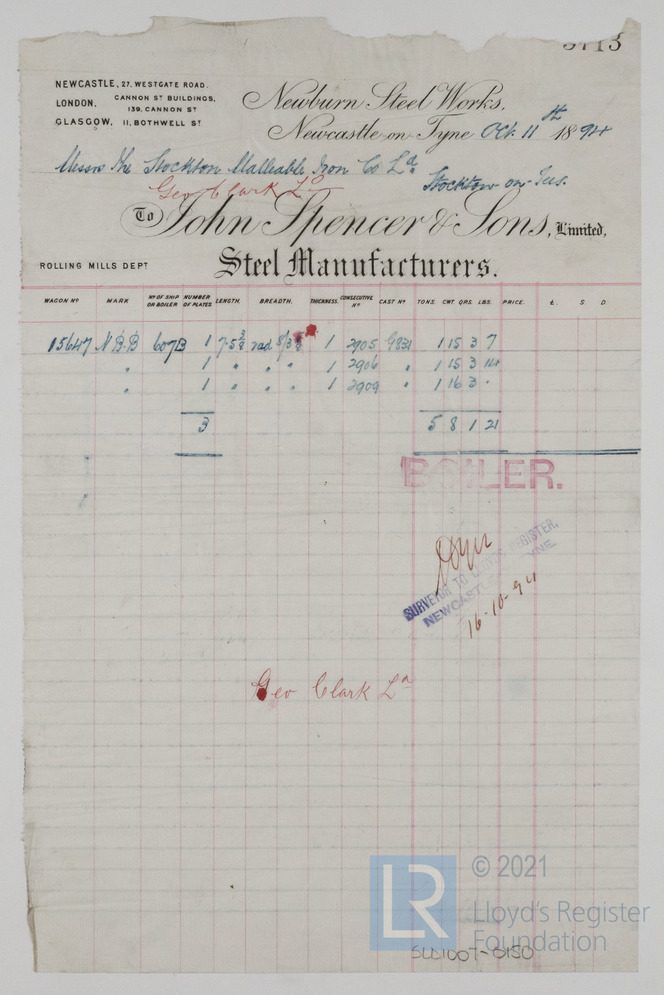 3113
NEWCASTLE, 27. WESTGATE ROAD.
LONDON, CANNON ST BUILDINGS, 139, CANNON ST
GLASGOW, 11, BOTHWELL ST.
Newburn Steel Works,
Newcastle-on-Tyne Oct. 11th 1894
Messrs The Stockton Malleable Iron Co Ld
Geo Clark Ld
Stockton-on-Tees.
To John Spencer & Sons, Limited,
ROLLING MILLS DEPT
Steel Manufacturers.
WAGON No MARK No OF SHIP OR BOILER NUMBER OF PLATES LENGTH. BREADTH. THICKNESS. CONSECUTIVE No CAST No TONS. CWT. QRS. LBS. PRICE. £. S D.
15647 N.B.B 607B 1 7-5 3/8 rad 1 2905 G831 1 15 3 7
" " 1 " " " 1 2906 " 1 15 3 14
" " 1 " " " 1 2909 " 1 16 3 "
3 5 8 1 21
BOILER.
SURVEYOR TO LLOYD'S REGISTER,
NEWCASTLE-ON-TYNE.
16-10-94
Geo Clark Ld
LR © 2021
Lloyd's Register
Foundation
SLD1007-0150